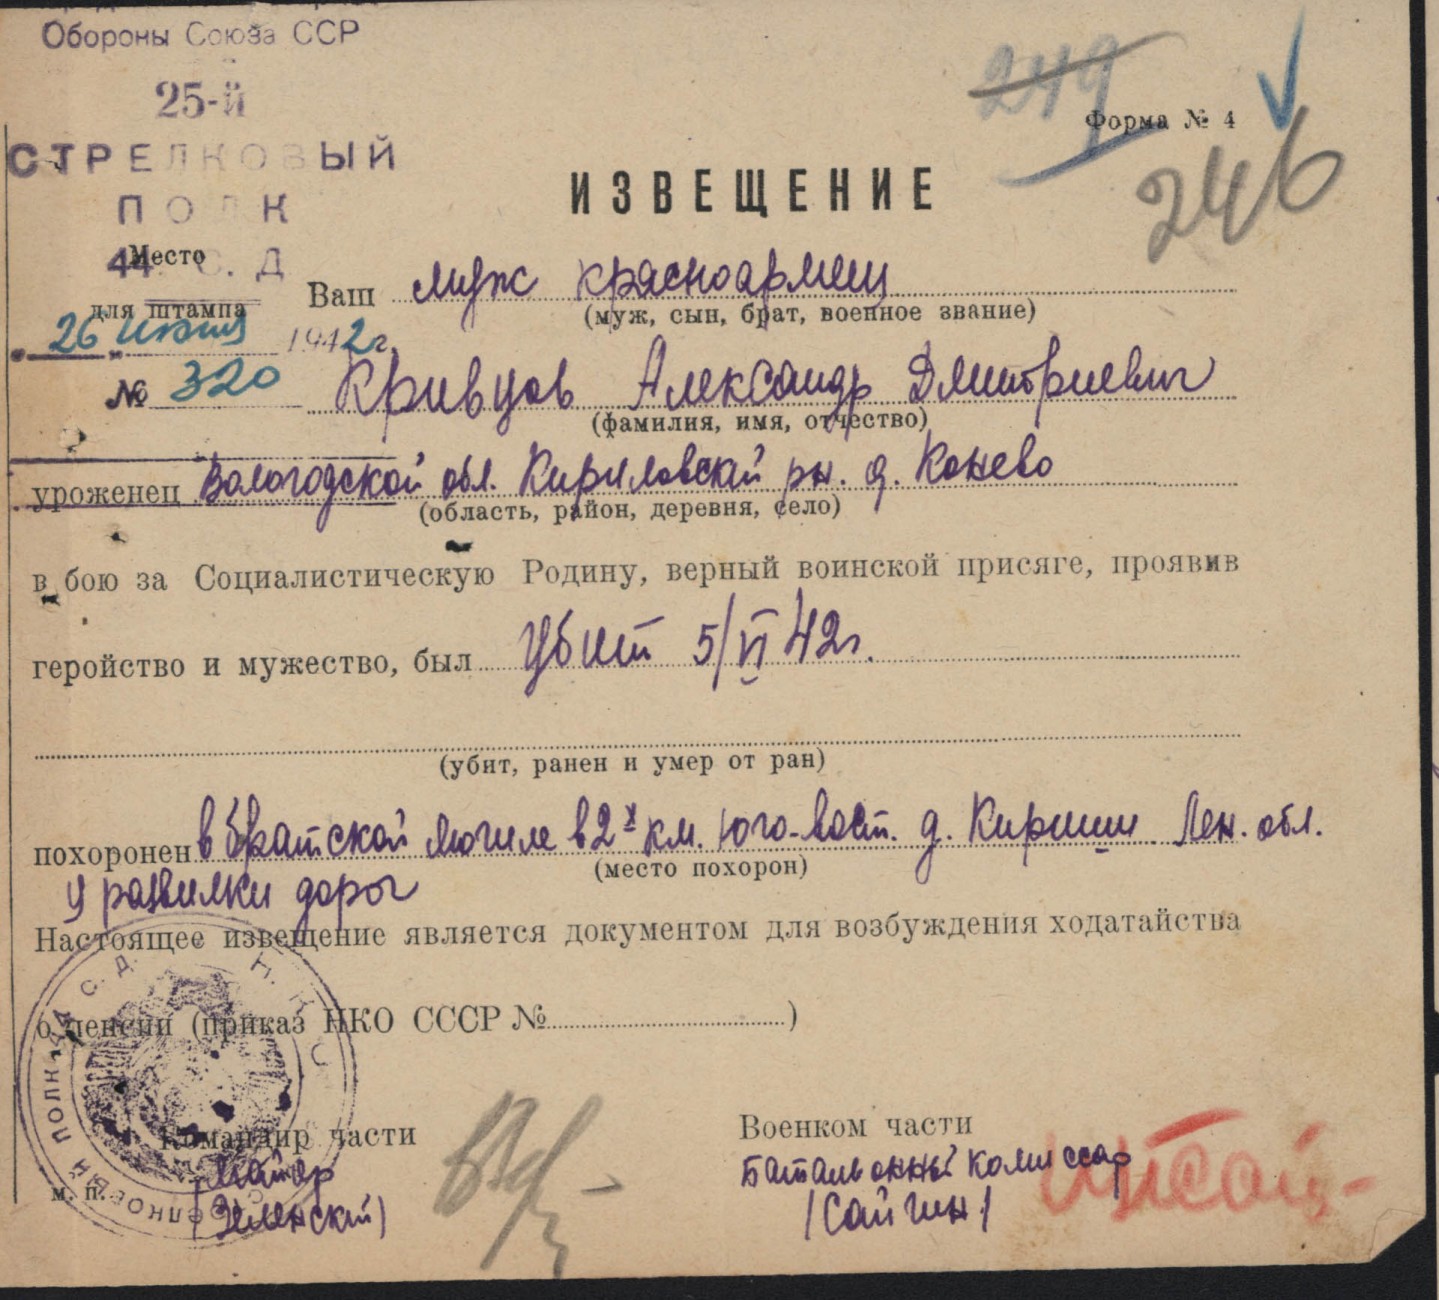 Обороны Союза ССР
25-й
СТРЕЛКОВЫЙ
ПОЛК
44 С. Д
Место
для штампа
26 июня 1942 г.
№ 320
249
Форма № 4
246
ИЗВЕЩЕНИЕ
Ваш муж красноармеец
(муж, сын, брат, военное звание)
Кривцов Александр Дмитриевич
(фамилия, имя, отчество)
уроженец Вологодской обл. Кириловский рн. д. Конево
(область, район, деревня, село)
в бою за Социалистическую Родину, верный воинской присяге, проявив
геройство и мужество, был убит 5/VI 42г.
(убит, ранен и умер от ран)
похоронен в братской могиле в 2х км. юго-вост. д. Кириши Лен. обл.
(место похорон)
у развилки дорог
Настоящее извещение является документом для возбуждения ходатайства
о пенсии (приказ НКО СССР № )
Командир части
Майор
(Зеленский)
м. п.
Военком части
Батальонный комиссар
/Сайгин/